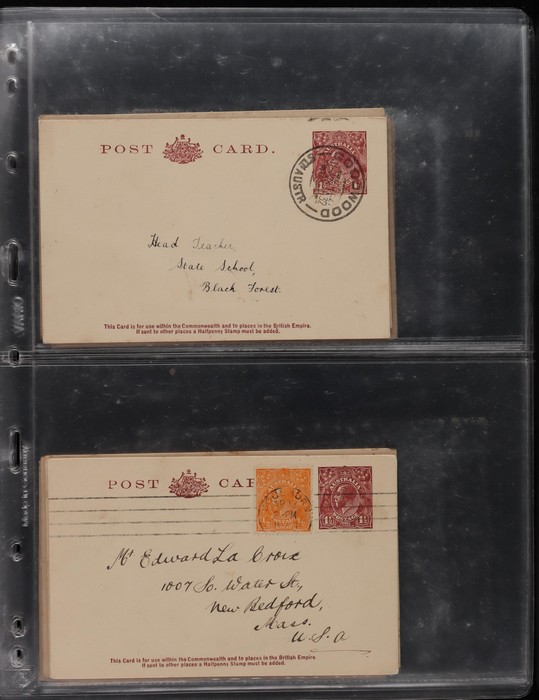 POST CARD.
AUSTRALIA
GOODWOOD
STH AUSTR
Head Teacher,
State School,
Black Forest.
This Card is for use within the Commonwealth and to places in the British Empire.
If sent to other places a Halfpenny Stamp must be added.
POST CAR
AUSTRALIA
POSTAGE
AUSTRALIA
POSTAGE
1½ 1½
Mr Edward La Croix
1007 So. Water St,,
New Bedford,
Mass.
U.S.A
This Card is for use within the Commonwealth and to places in the British Empire
If sent to other places a Halfpenny Stamp must be added.